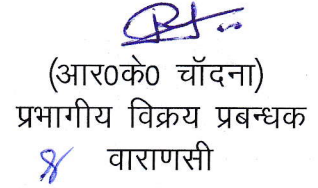 (आर0के0 चॉदना)
प्रभागीय विक्रय प्रबन्धक
वाराणसी